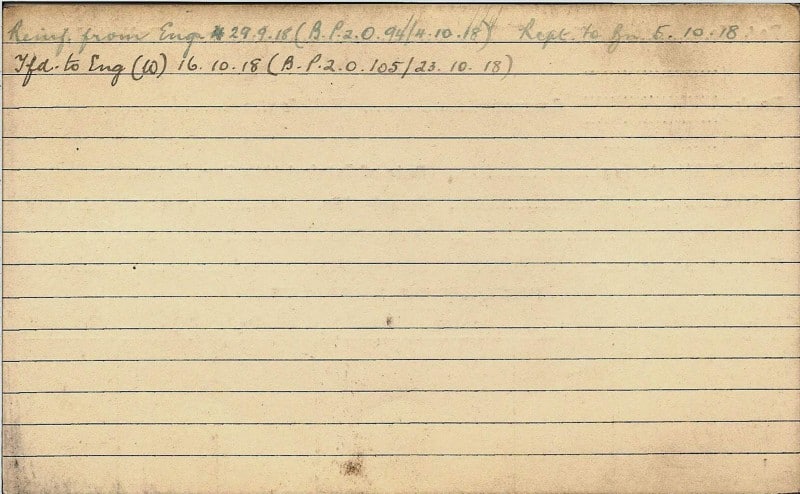 Reinf. from Eng 29.9.18 (B.P.2.O.94/4.10.18) Rept. to Bn 5.10.18.
Tfd. to Eng (W) 16.10.18 (B.P.2.O.105/23.10.18)